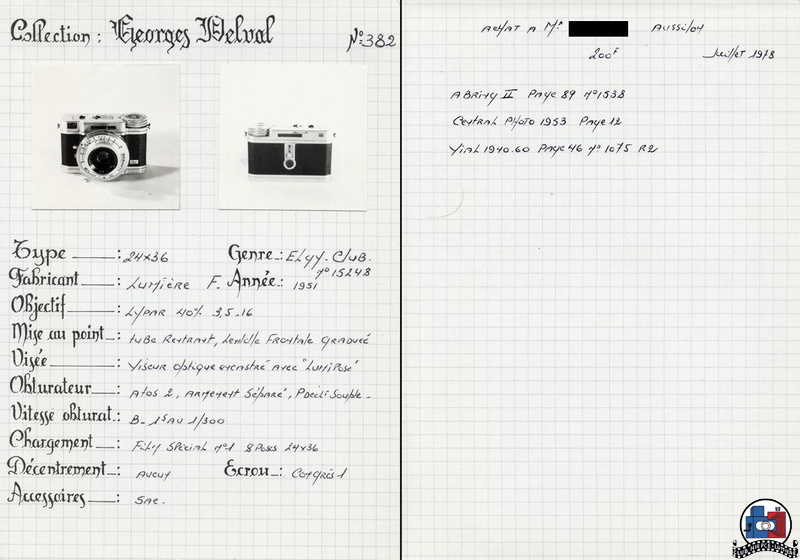 Collection : Georges Delval N° 382
Type : 24x36 Genre : ELGY. Club.
n° 15248
Fabricant : Lumière F. Année : 1951
Objectif : Lypar 40% 3,5-16
Mise au point : tube Rentrant, lentille Frontale graduée
Visée : Viseur optique encastré avec "Lumipose"
Obturateur : Atos 2, Armement Séparé, P Décl. Souple.
Vitesse obturat. : B - 1s Au 1/300
Chargement : Film Spécial n°1 8 Poses 24x36
Décentrement : Aucun Ecrou : Congrès 1
Accessoires : Sac.
ACHAT A Mr AUSSILLON
200F Juillet 1978
ABRING II Page 89 n° 1538
Central Photo 1953 Page 12
Vial 1940.60 Page 46 n° 1075 R2